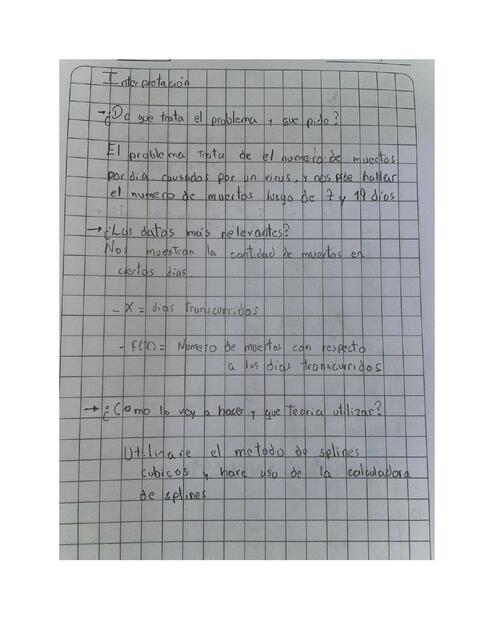 Interpretación
→ ¿De que trata el problema y que pide?
El problema trata de el numero de muertos
por dia causados por un virus, y nos pide hallar
el numero de muertos luego de 7 y 19 dias
→ ¿Los datos más relevantes?
Nos muestran la cantidad de muertos en
ciertos dias
- X = dias transcurridos
- F(X) = Numero de muertos con respecto
a los dias transcurridos
→ ¿Como lo voy a hacer y que teoria utilizar?
Utilizare el metodo de splines
cubicos y hare uso de la calculadora
de splines